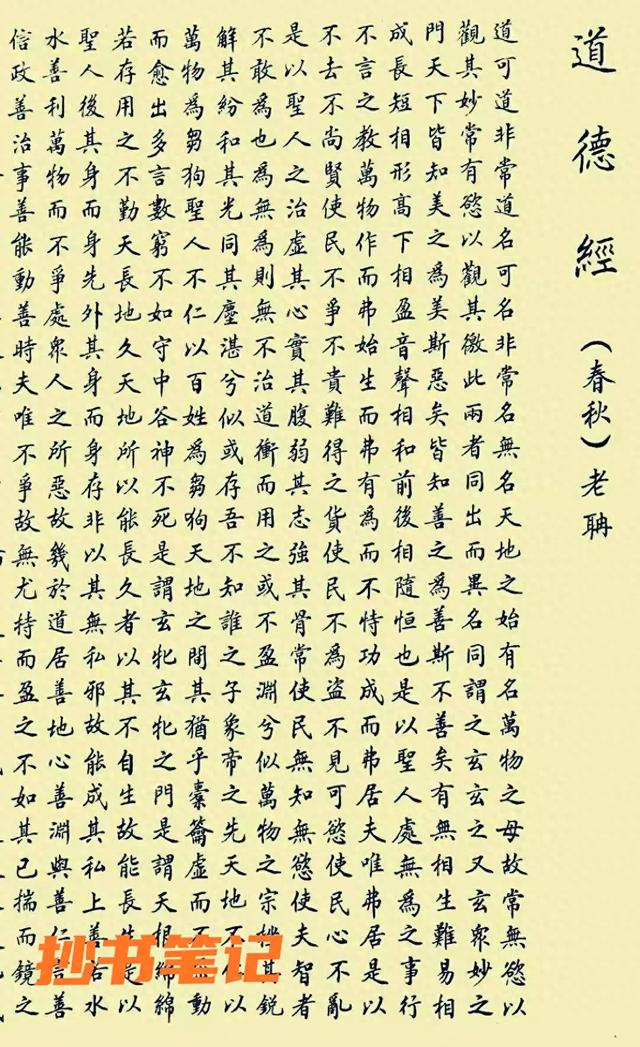 道德經（春秋）老聃
道可道非常道名可名非常名無名天地之始有名萬物之母故常無慾以
觀其妙常有慾以觀其徼此兩者同出而異名同謂之玄玄之又玄眾妙之
門天下皆知美之為美斯惡矣皆知善之為善斯不善矣有無相生難易相
成長短相形高下相盈音聲相和前後相隨恒也是以聖人處無為之事行
不言之教萬物作而弗始生而弗有為而不特功成而弗居夫唯弗居是以
不去不尚賢使民不爭不貴難得之貨使民不為盜不見可慾使民心不亂
是以聖人之治虛其心實其腹弱其志強其骨常使民無知無慾使夫智者
不敢為也為無為則無不治道衝而用之或不盈淵兮似萬物之宗挫其銳
解其紛和其光同其塵湛兮似或存吾不知誰之子象帝之先天地不仁以
萬物為芻狗聖人不仁以百姓為芻狗天地之間其猶乎橐籥虛而不動
而愈出多言數窮不如守中谷神不死是謂玄牝玄牝之門是謂天根綿綿
若存用之不勤天長地久天地所以能長久者以其不自生故能長生是以
聖人後其身而身先外其身而身存非以其無私邪故能成其私上善若水
水善利萬物而不爭處眾人之所惡故幾於道居善地心善淵與善仁言善
信政善治事善能動善時夫唯不爭故無尤特而盈之不如其已揣而鏡之
抄书笔记